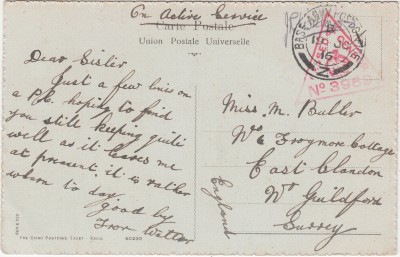 On Active Service
Carte Postale
Union Postale Universelle
BASE ARMY POST
Z
16
No 3989
Dear Sister
Just a few lines on
a P.C. hoping to find
you still keeping quite
well as it leaves me
at present, it is rather
warm to day
good by
from Walter
Miss M. Butler
Frogmore Cottage
East Clandon
Nr Guildford
Surrey
England
THE CAIRO POSTCARD TRUST CAIRO.